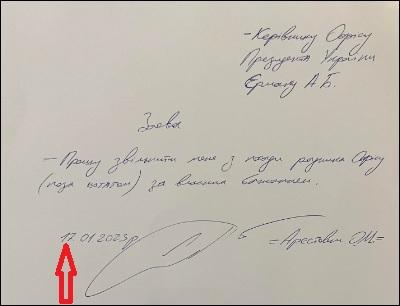 - Керівнику Офісу
Президента України
Єрмаку А.Б.
Заява
- Прошу звільнити мене з посади радника Офісу
(поза штатом) за власним бажанням.
17.01.2023р
=Арестович О.М=